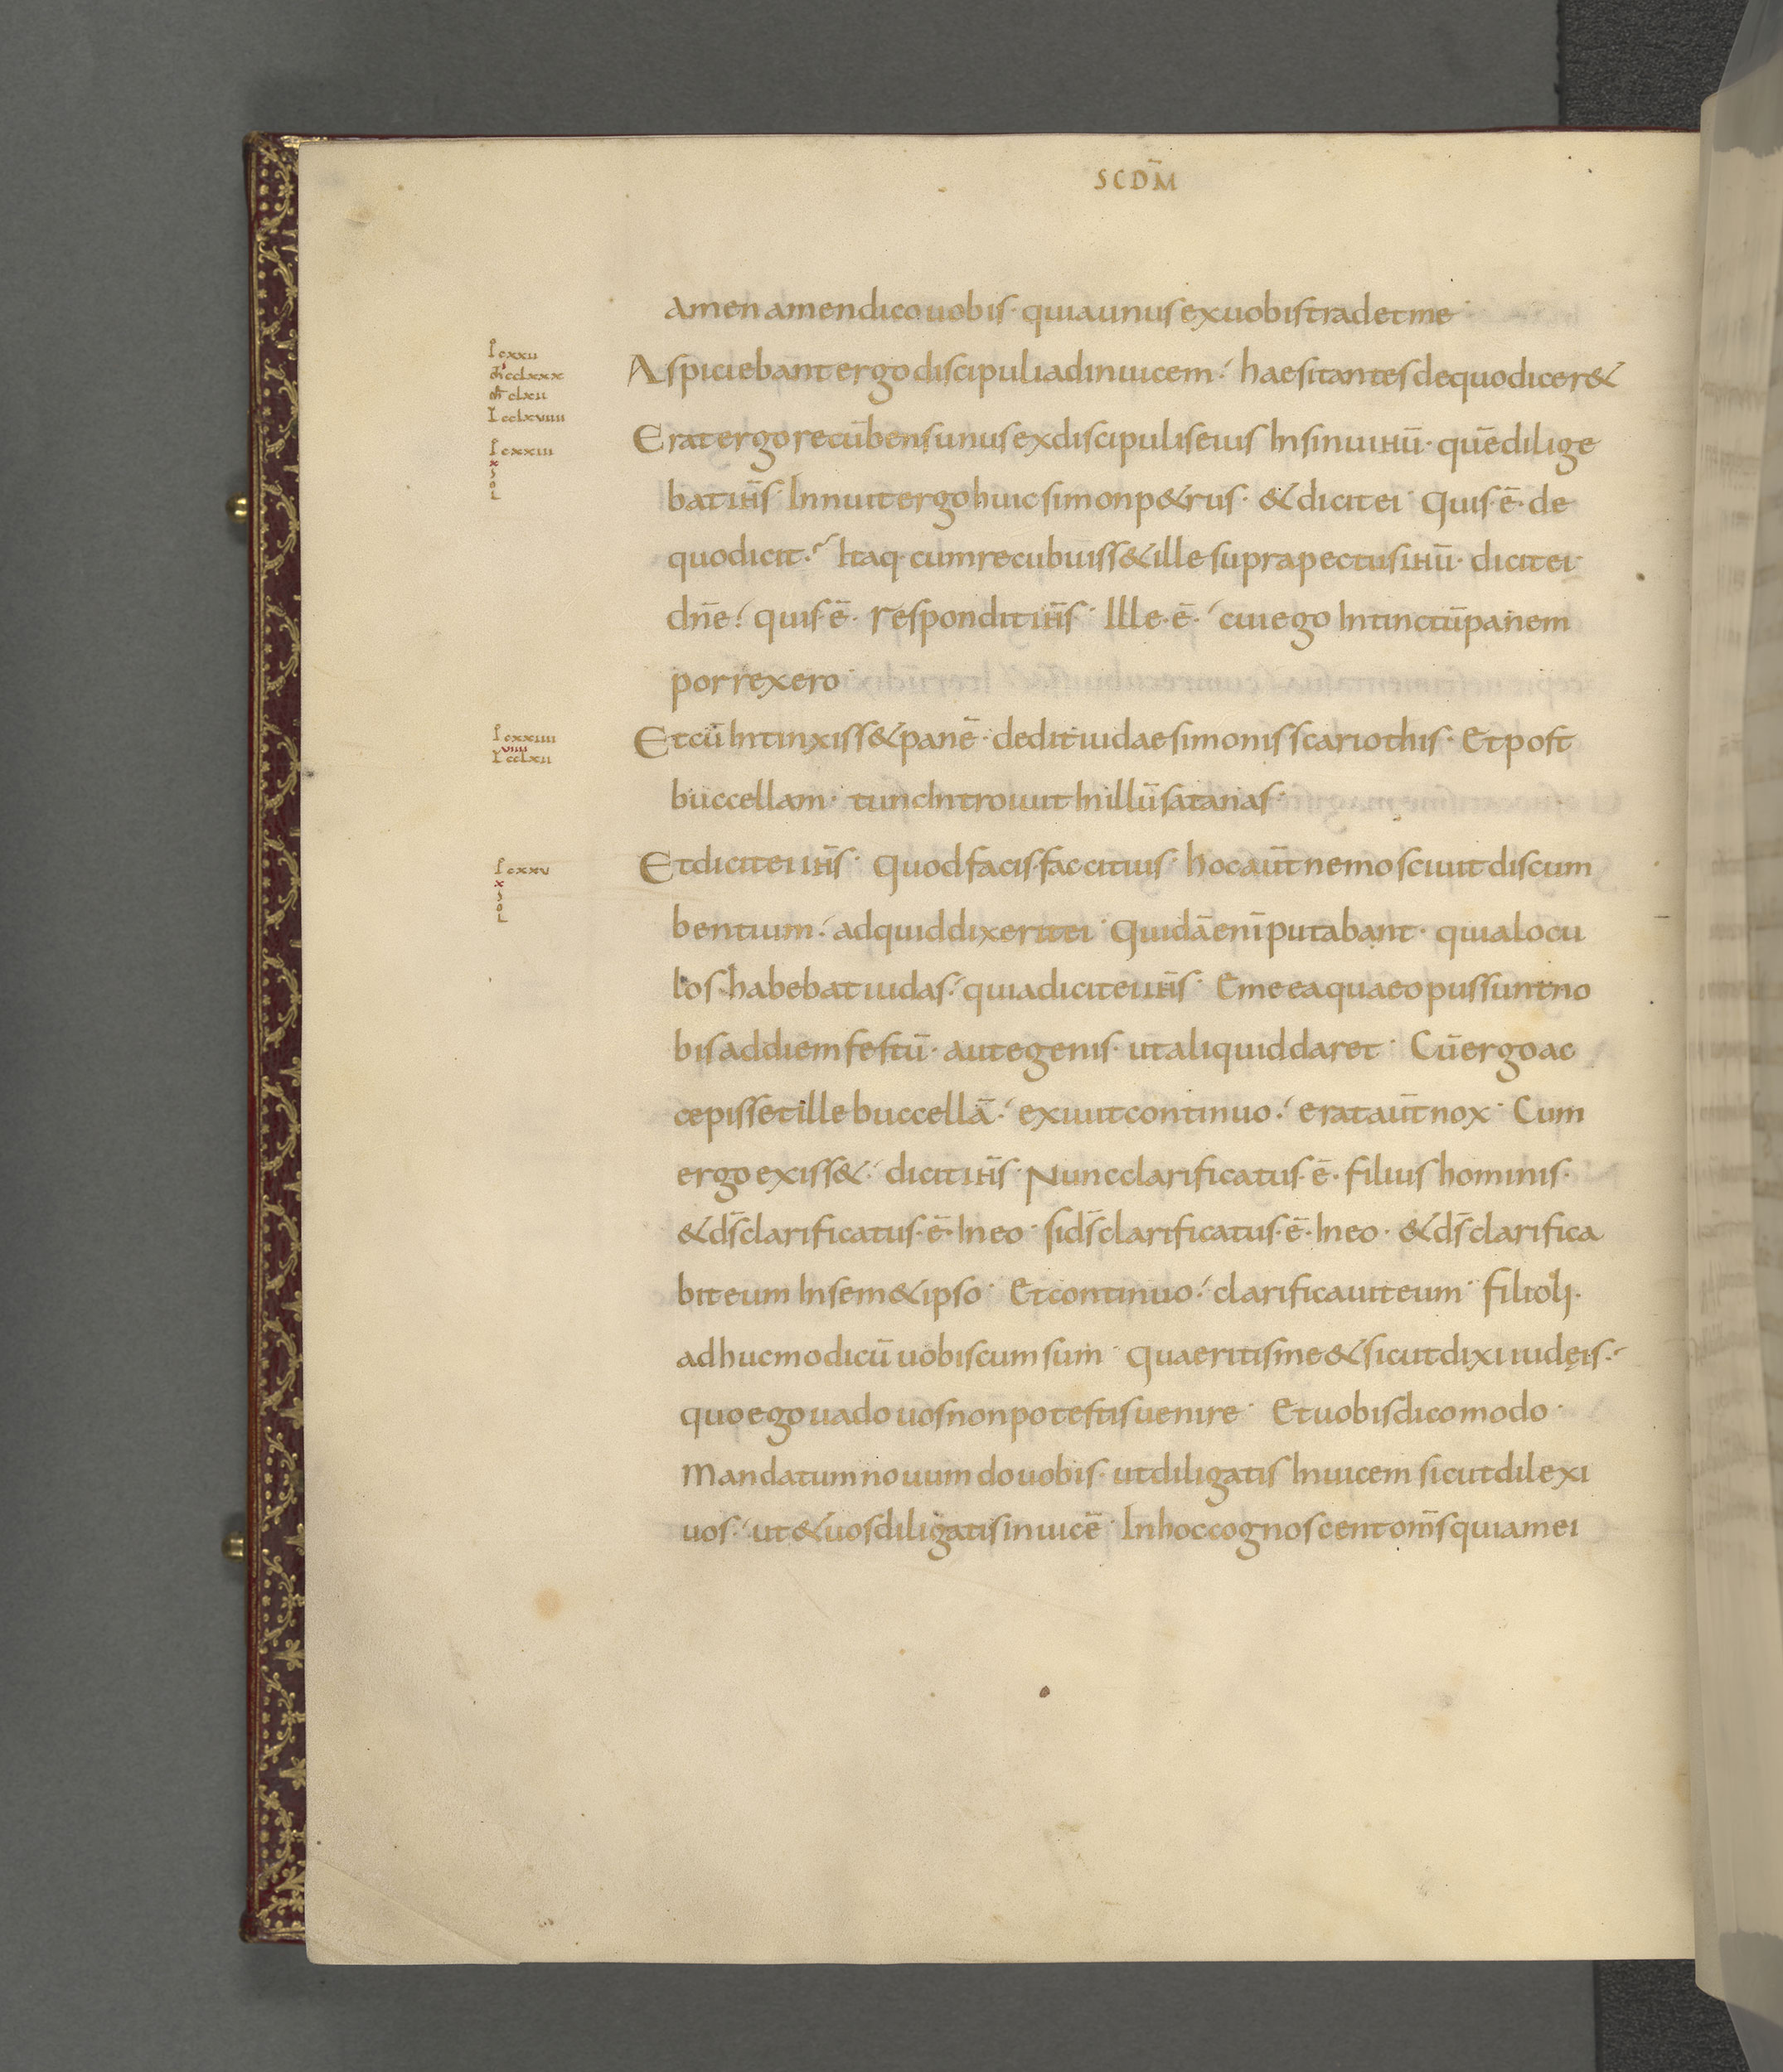 SCDM̄
amen amen dico uobis · quia unus ex uobis tradet me ·
Aspiciebant ergo discipuli ad inuicem · haesitantes de quo dicer&
Erat ergo recūbens unus ex discipulis eius In sinu ihū · quē dilige
bat ihs̄ · Innuit ergo huic simon p&rus · & dicit ei · Quis · ē · de
quo dicit · Itaq· cum recubuiss& ille supra pectus ihū · dicit ei ·
dn̄e · quis · ē · respondit ihs̄ · Ille · ē · cui ego Intinctū panem
porrexero ·
Et cū Intinxiss& panē · dedit iudae simonis scariothis · Et post
buccellam · tunc Introiuit In illū satanas ·
Et dicit ei ihs̄ · Quod facis · fac citius · hoc aūt nemo sciuit discum
bentium · ad quid dixerit ei · Quidā enī putabant · quia locu
los habebat iudas · quia dicit ei ihs̄ · Eme ea quae opus sunt no
bis ad diem festū · aut egenis · ut aliquid daret · Cū ergo ac
cepisset ille buccellā · exiuit continuo · erat aūt nox · Cum
ergo exiss& · dicit ihs̄ · Nunc clarificatus · ē · filius hominis ·
& ds̄ clarificatus · ē · In eo · si ds̄ clarificatus · ē · In eo · & ds̄ clarifica
bit eum In sem&ipso · Et continuo · clarificauit eum · filioli ·
adhuc modicū uobiscum sum · Quaeritis me & sicut dixi iudęis ·
quo ego uado uos non potestis uenire · Et uobis dico modo ·
Mandatum nouum do uobis · ut diligatis Inuicem sicut dilexi
uos · ut & uos diligatis inuicē · In hoc cognoscent om̄s quia mei
I cxxii
cclxxx
clxii
I cclxviiii
I cxxiii
x
sol
I cxxiiii
viiii
I cclxii
I cxxv
x
sol